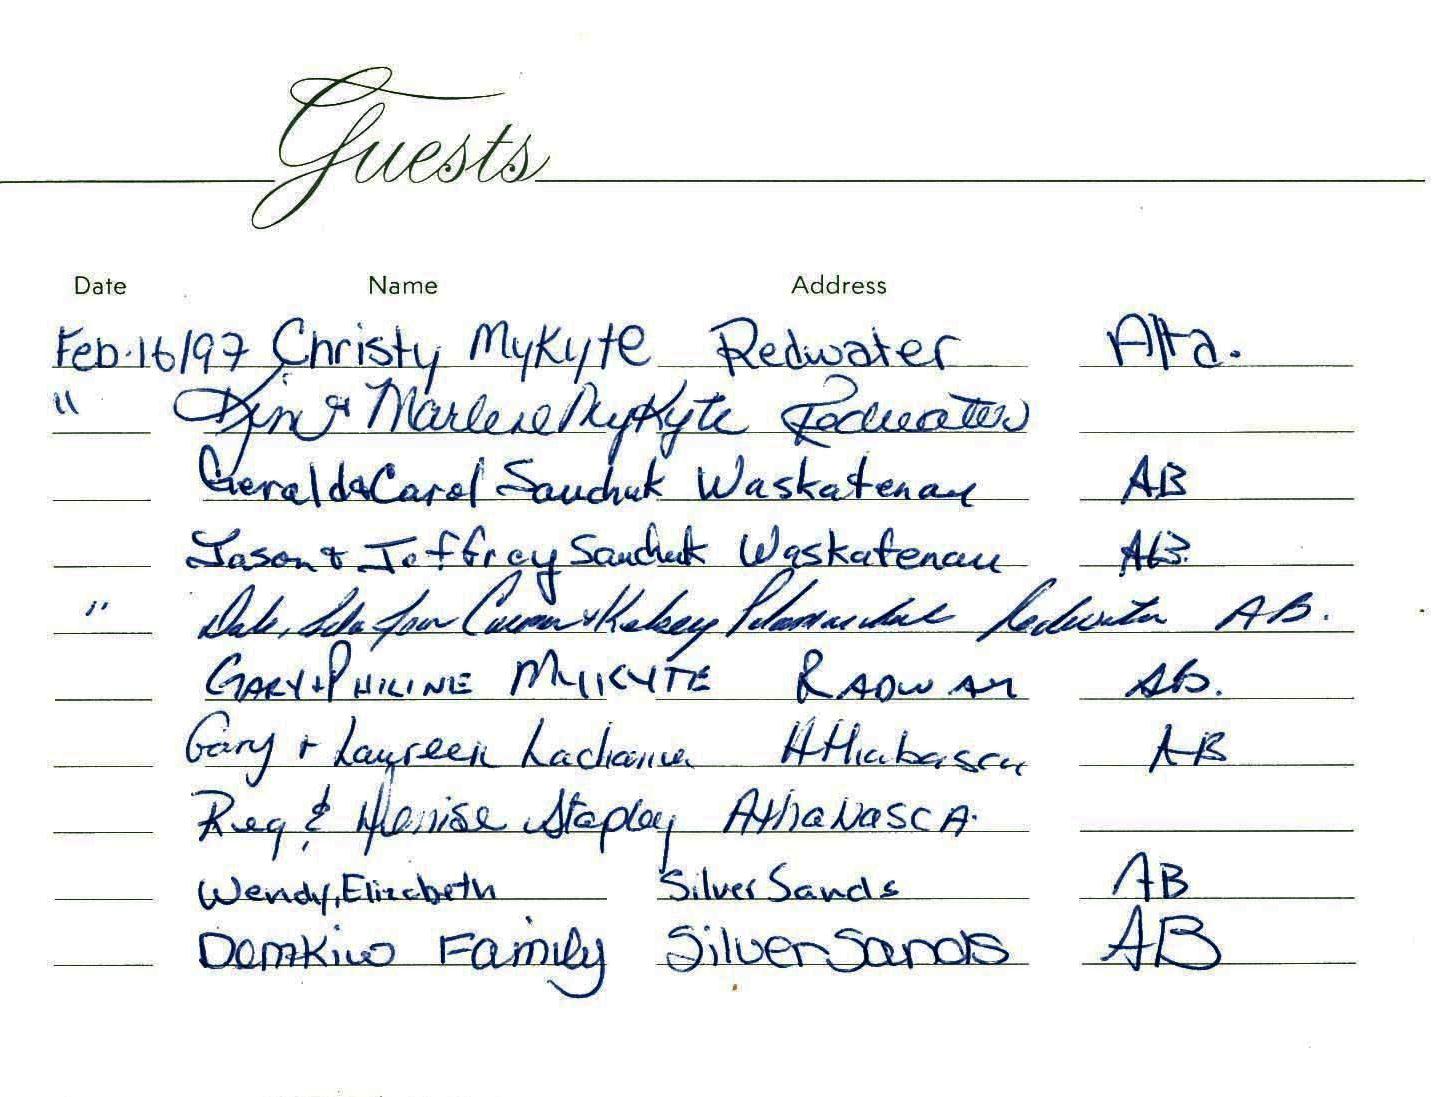 Guests
Date Name Address
Feb.16/97 Christy Mykyte Redwater Alta.
" Jim & Marlene Mykyte Redwater
Gerald & Carol Sauchuk Waskatenau AB
Jason & Jeffrey Sauchuk Waskatenau AB.
" Dale, & Kelsey Redwater AB.
GARY + PHILINE MYKYTE RADWAY AB.
Gary + Laureen Lachance Athabasca AB
Reg & Denise Stapley AthaNASCA.
Wendy, Elizabeth Silver Sands AB
Demkiw Family Silver Sands AB